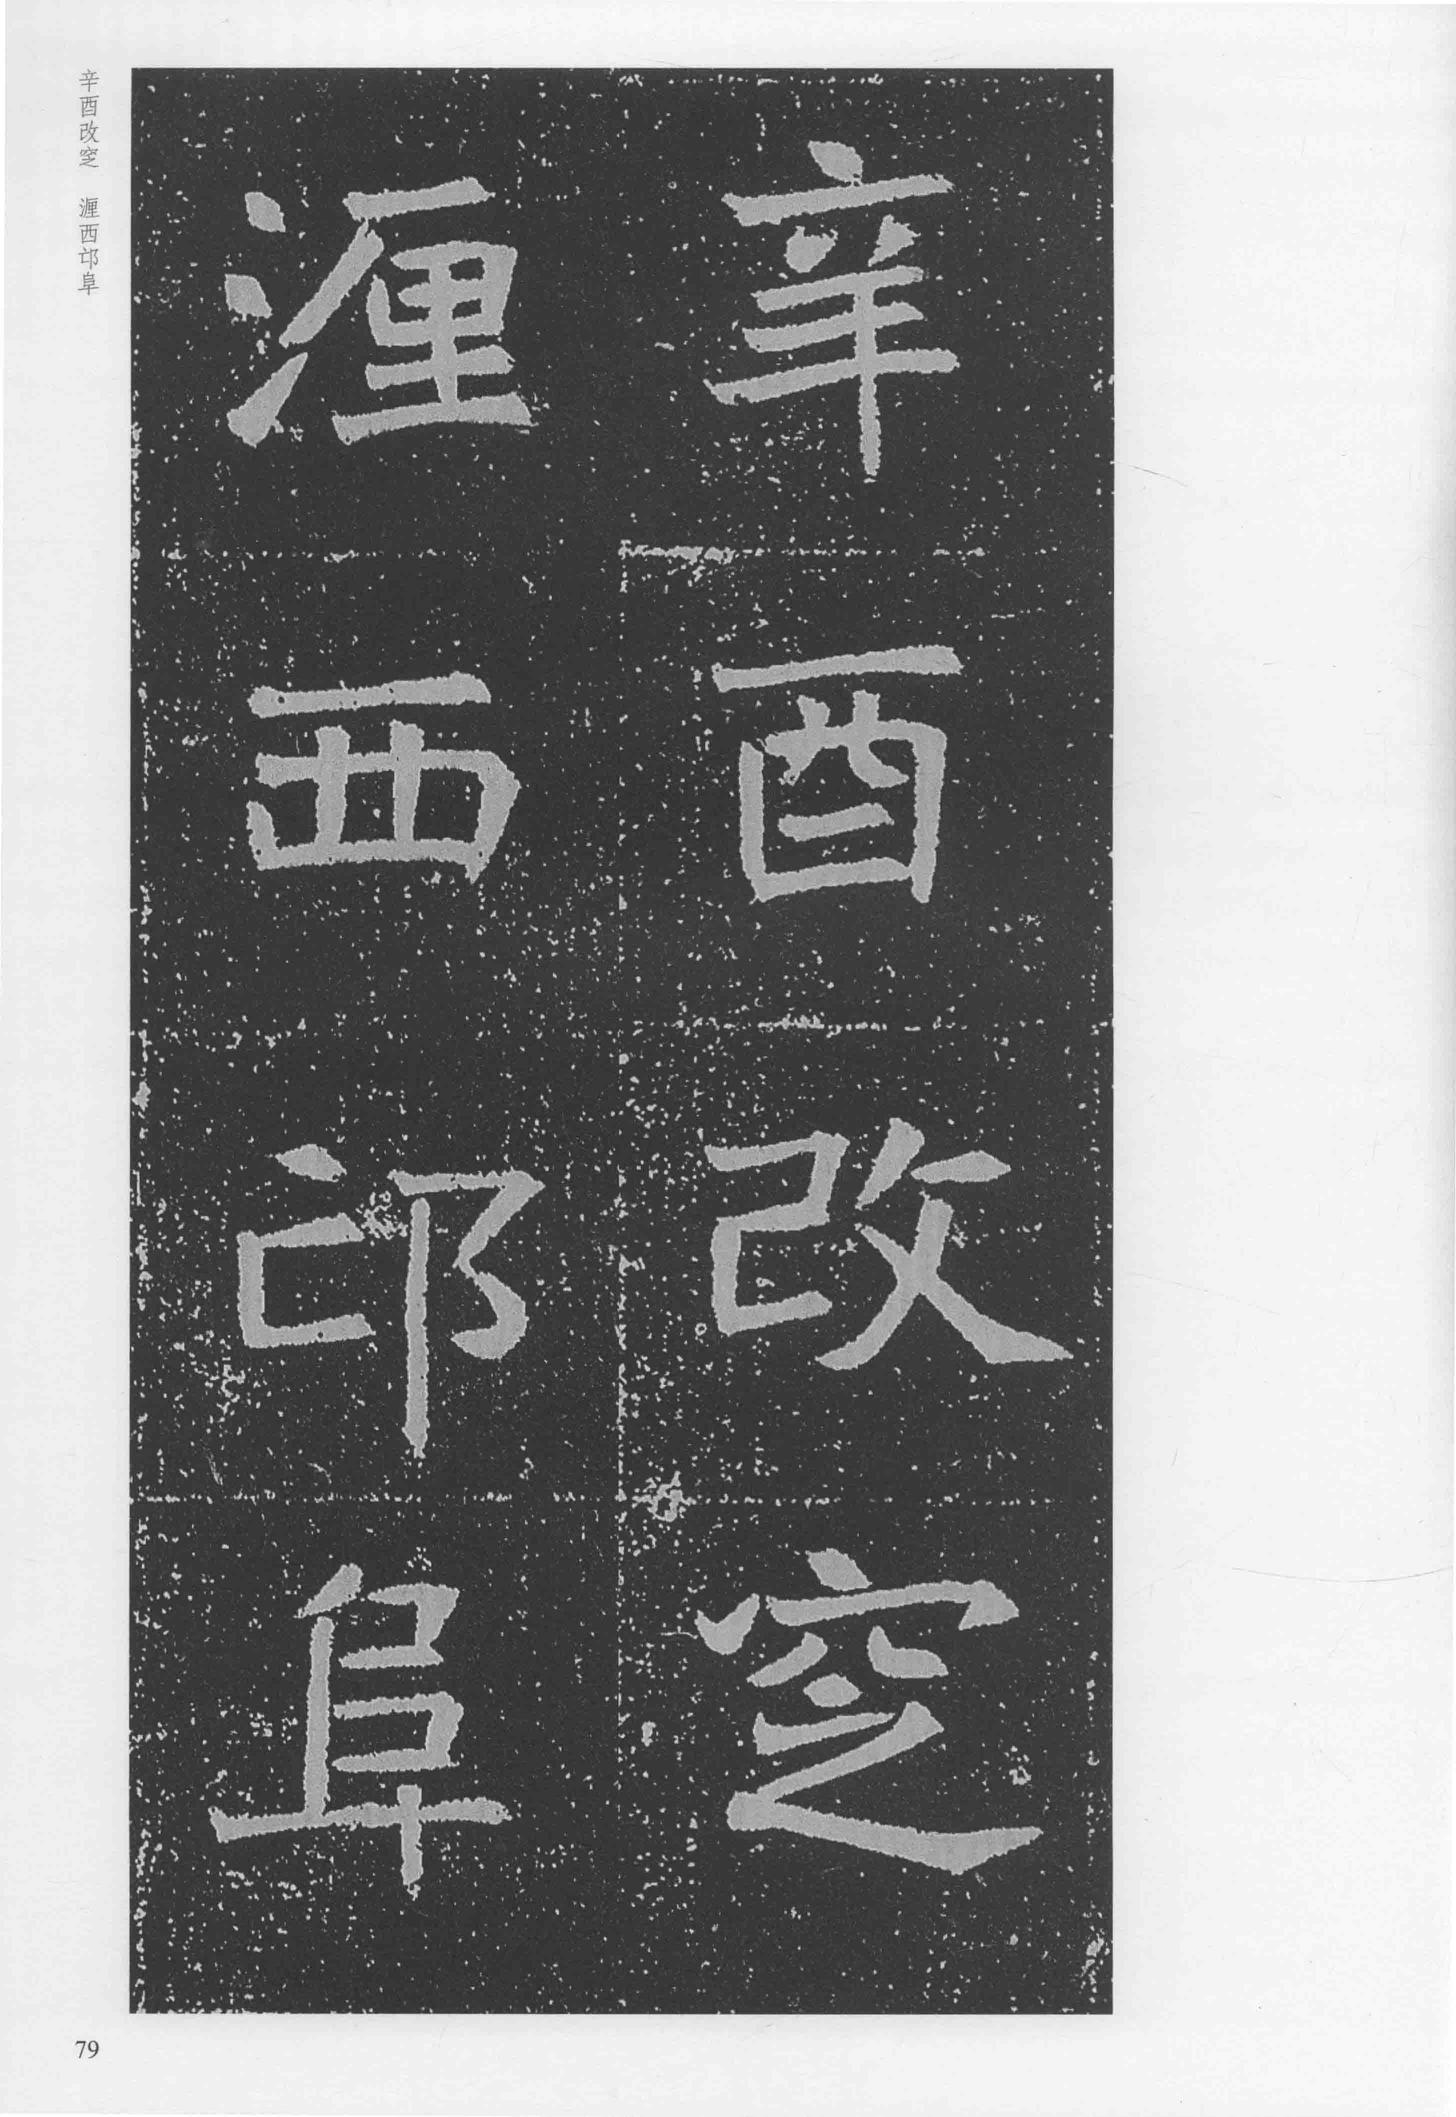 辛酉改窆
湹西邙阜
辛酉改窆　湹西邙阜
79